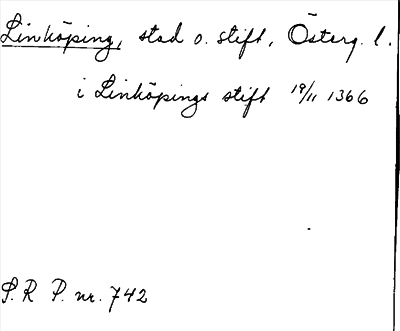 Linköping, stad o. stift, Österg. l.
i Linköpings stift 19/11 1366
S.R P. nr. 742